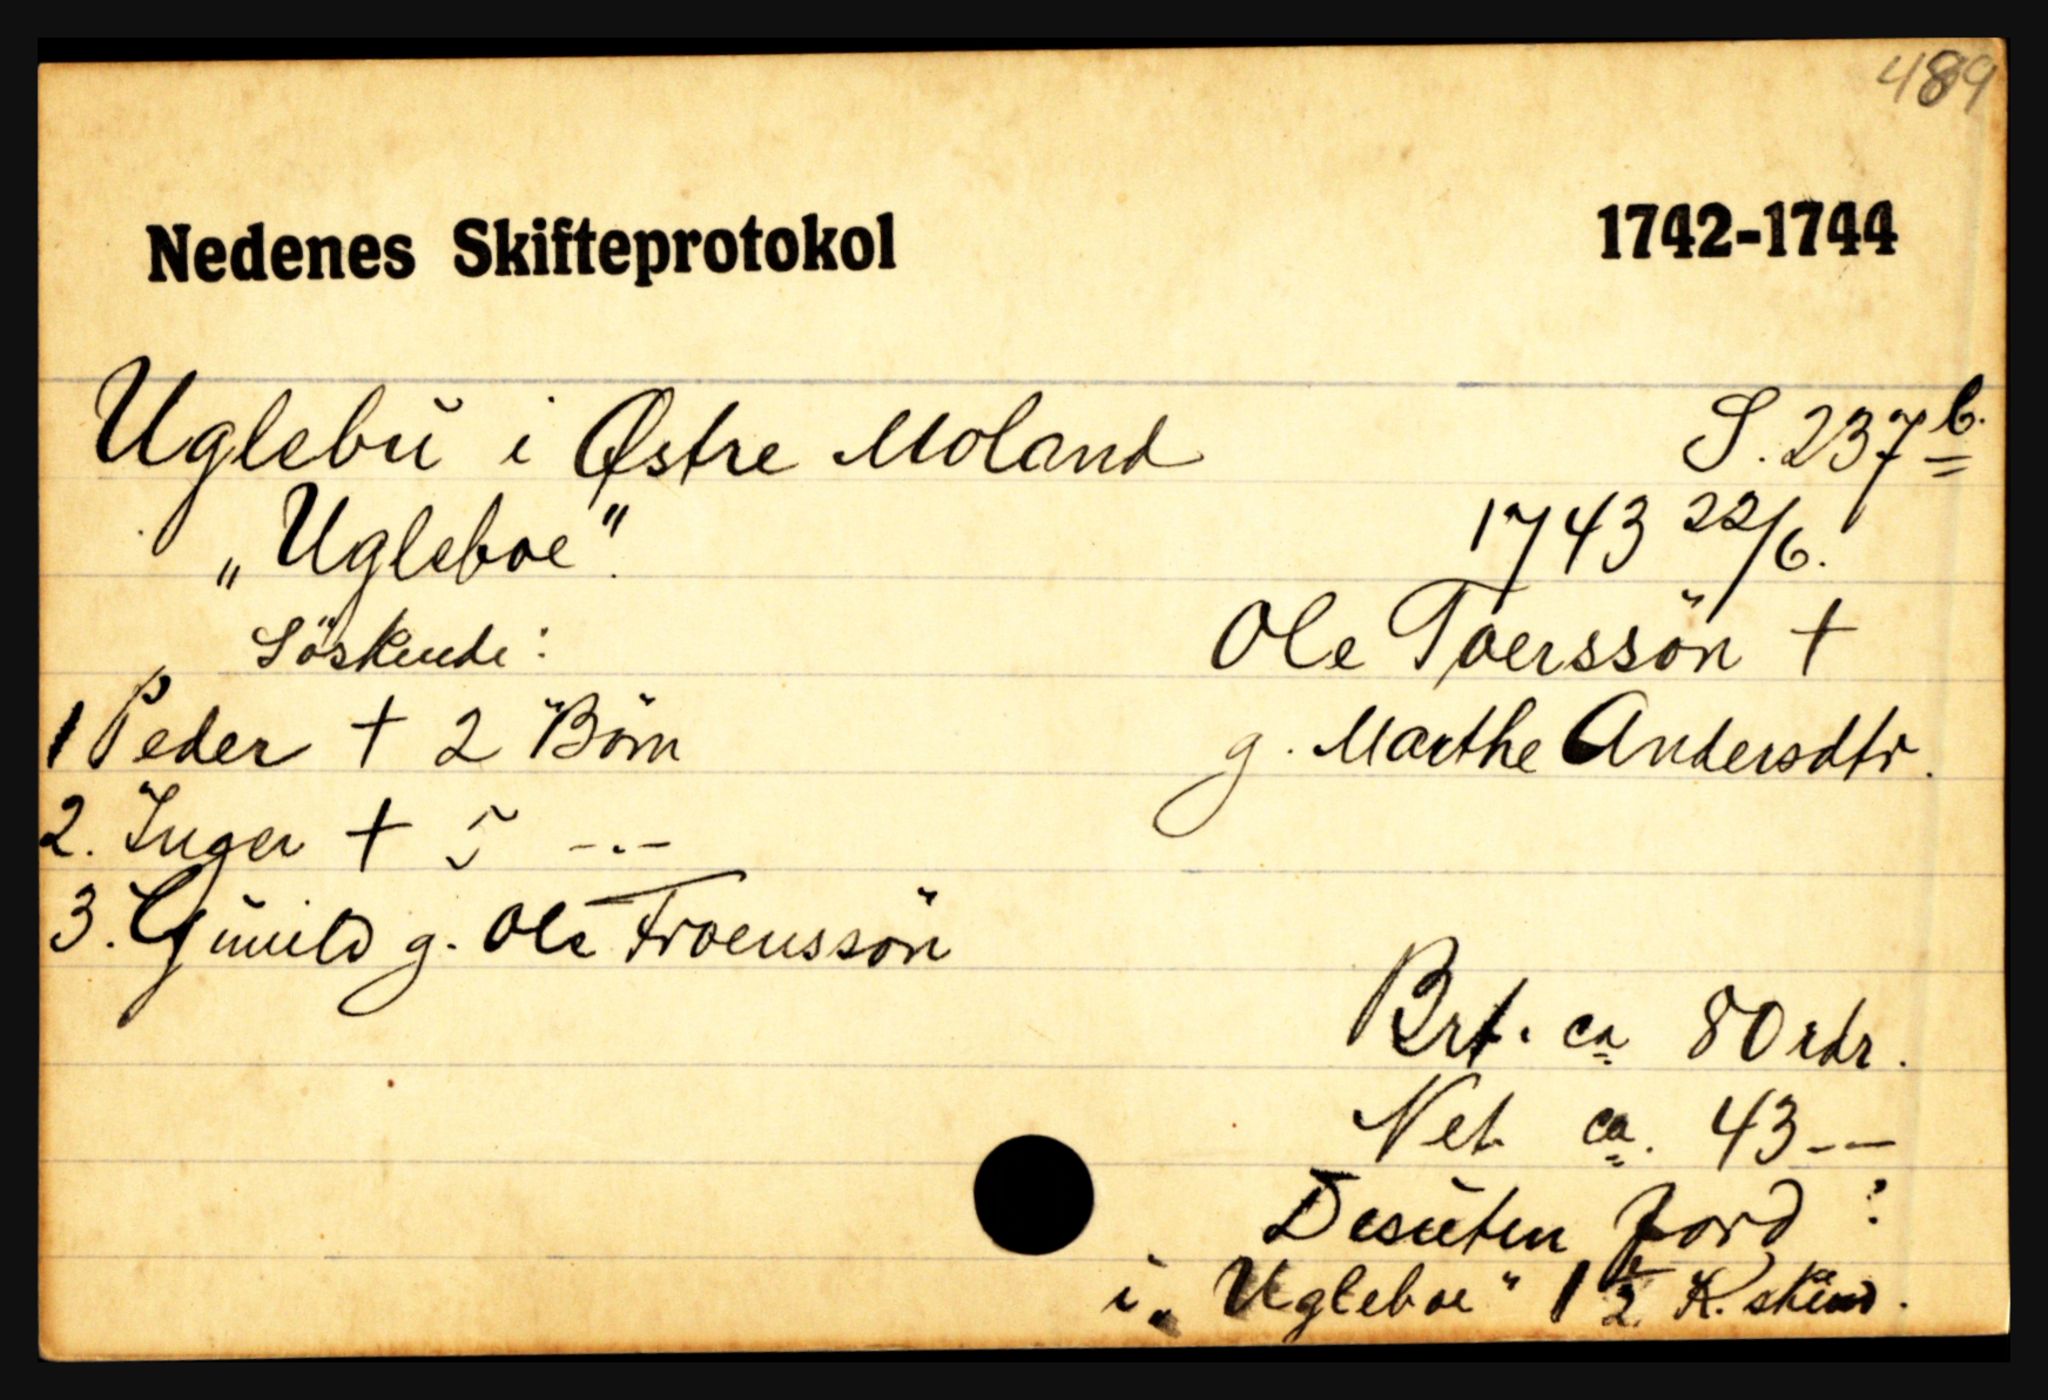 489
Nedenes Skifteprotokol 1742-1744
Uglebu i Østre Moland S. 237b.
„Ugleboe". 1743 22/6.
Söskende: Ole Toerssön †
1 Peder † 2 Börn g. Marthe Andersdtr.
2. Inger † 5 -.-
3. Gunild g. Ole Troenssön
Brt. ca 80 rdr.
Net. ca. 43 --
Desuten Jord:
i „Ugleboe" 1 1/2 K. skind.